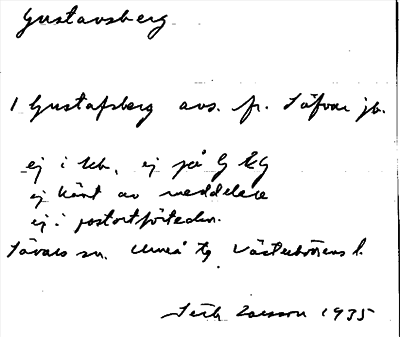 Gustavsberg
1 Gustafsberg avs. fr. Säfvar jb.
ej i kb, ej på G k G
ej känt av meddelare
ej i postortförteckn.
Sävars sn. Umeå tg Västerbottens l.
1935